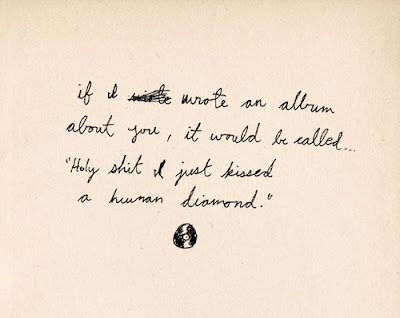 if I wrote an album
about you, it would be called...
"Holy shit I just kissed
a human diamond."